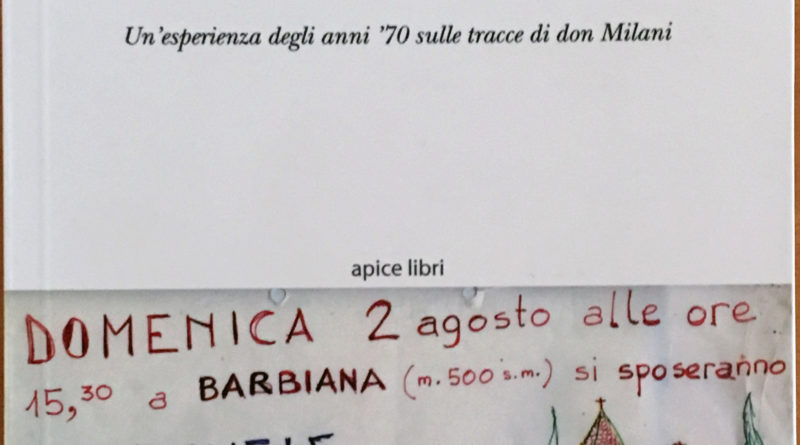 Un'esperienza degli anni '70 sulle tracce di don Milani
apice libri
DOMENICA 2 agosto alle ore
15,30 a BARBIANA (m. 500 s.m.) si sposeranno